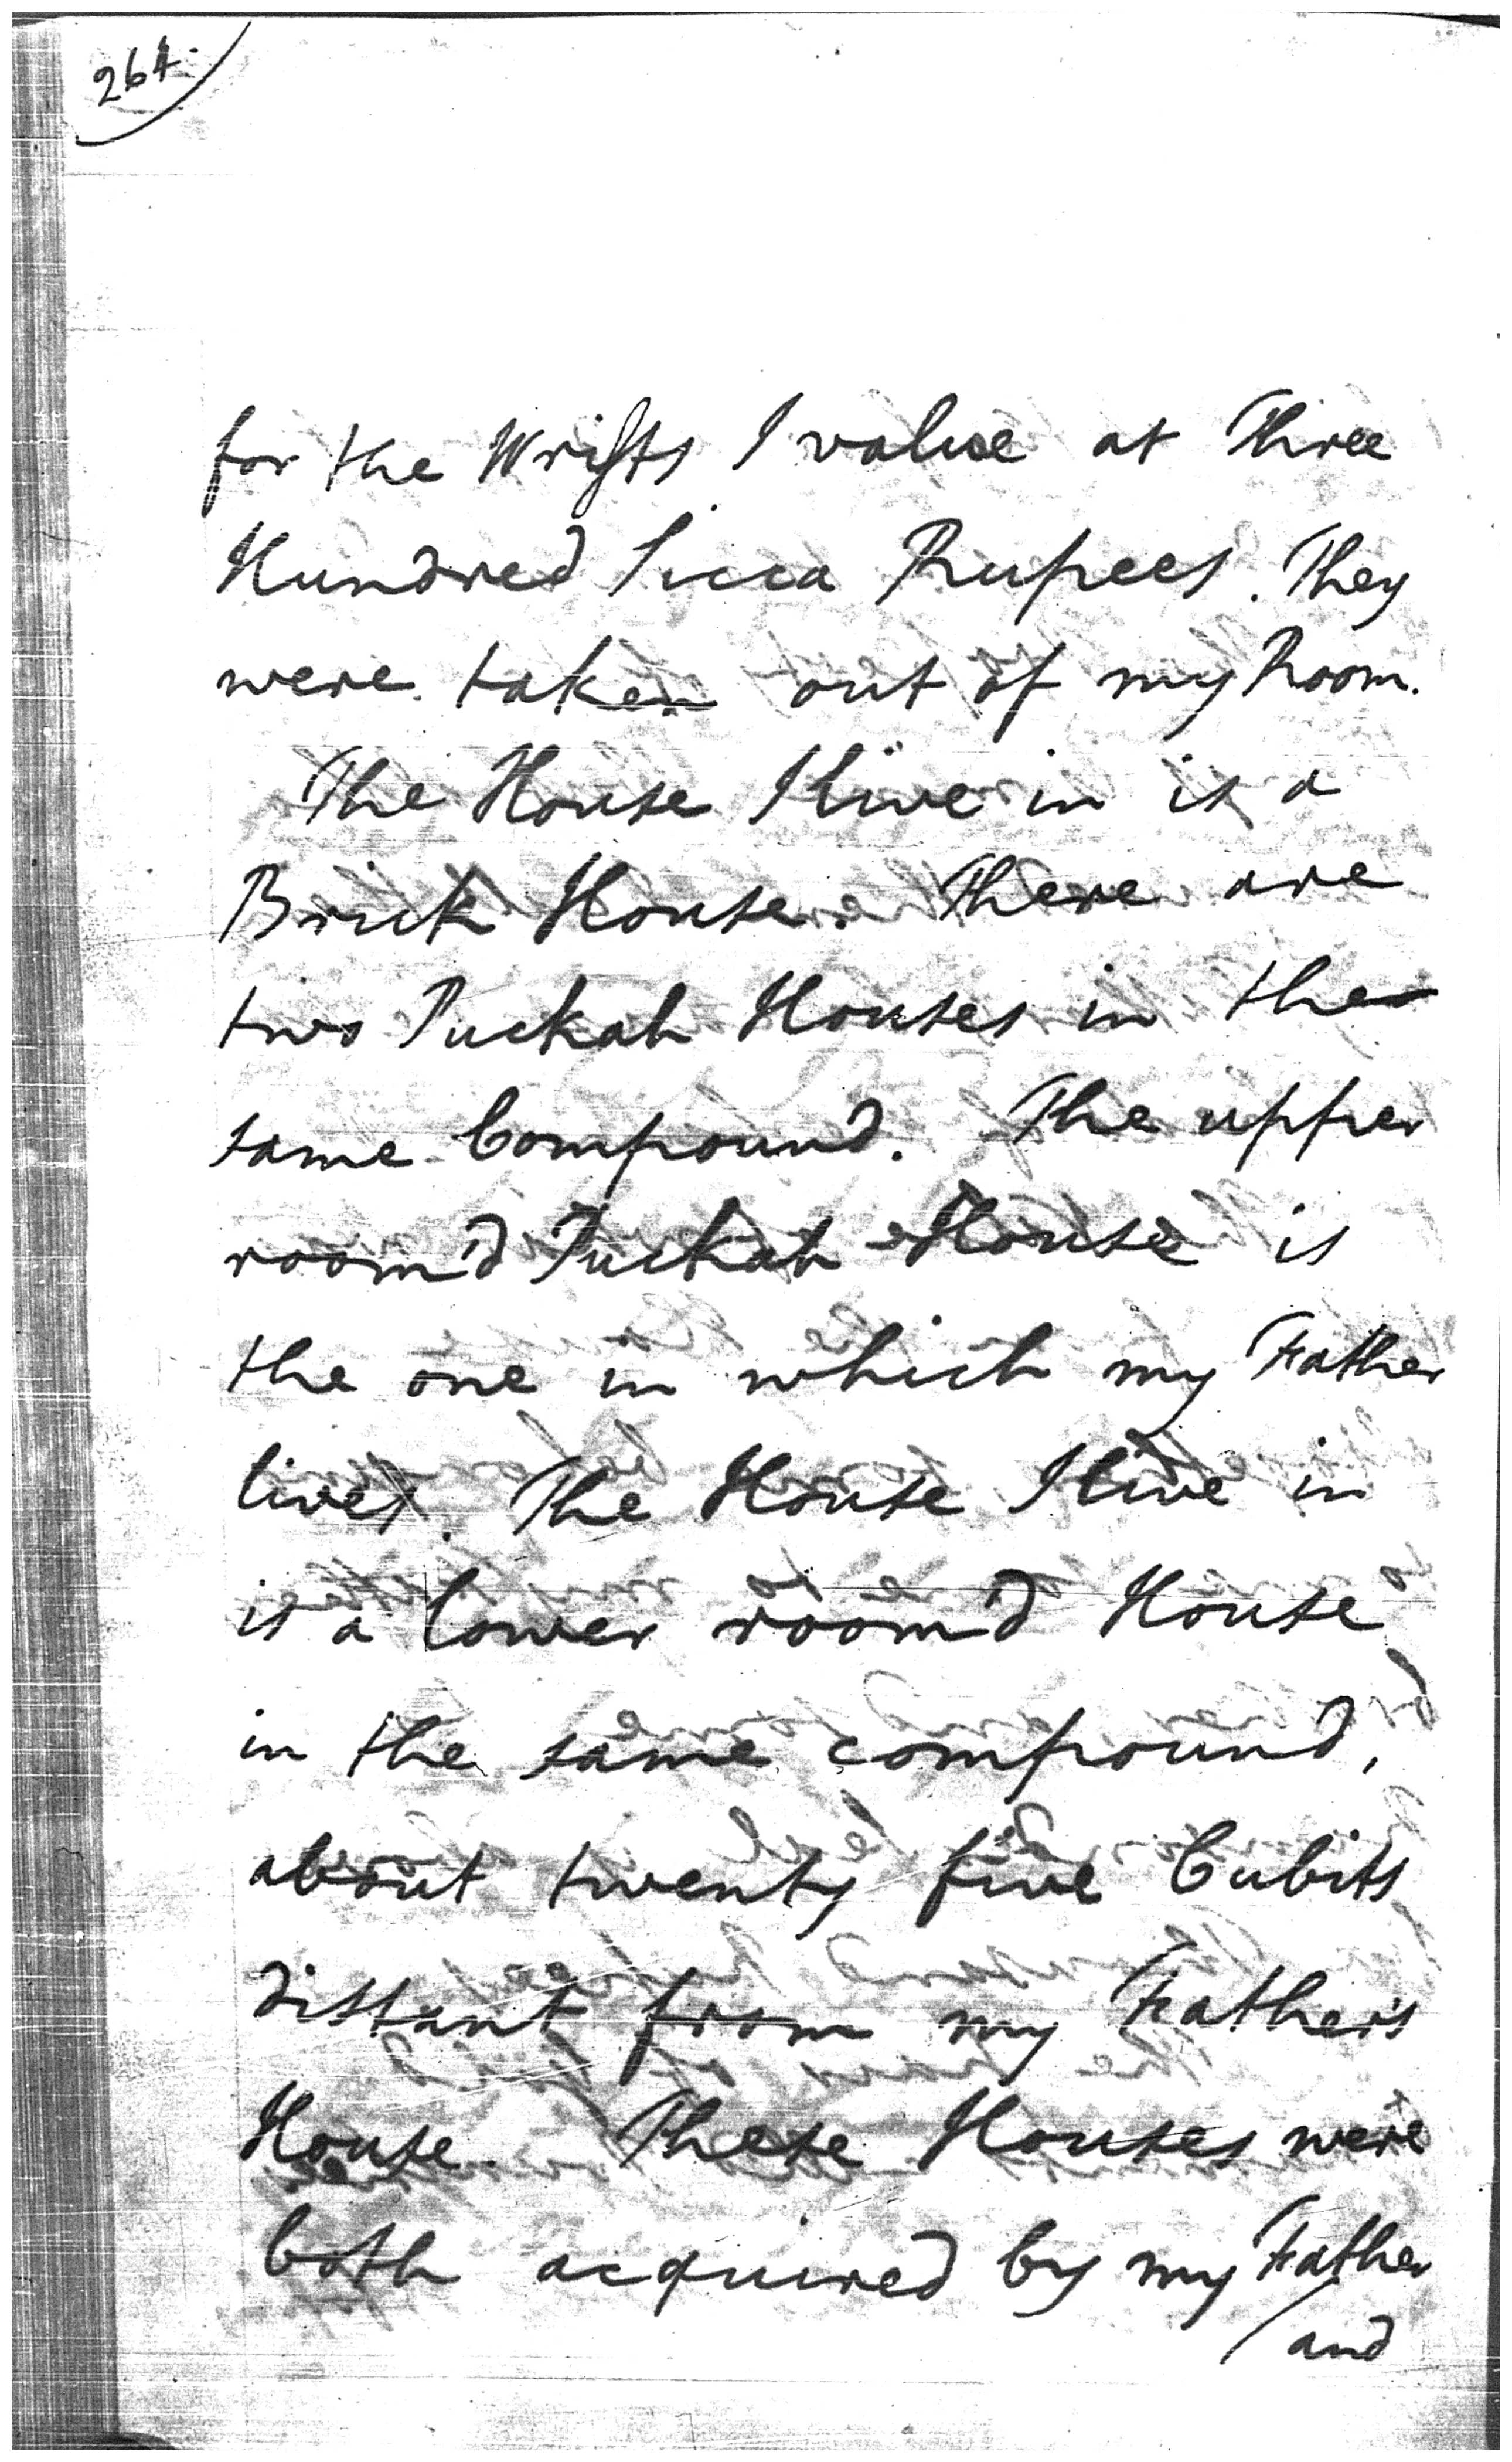 264.
for the Wrists I value at Three
Hundred Sicca Rupees. They
were taken out of my Room.
The House I live in is a
Brick House. There are
two Puckah Houses in the
same Compound. The upper
room'd Puckah House is
the one in which my Father
lives. The House I live in
is a lower room'd House
in the same compound,
about twenty five Cubits
distant from my Father's
House. These Houses were
both acquired by my Father
/ and